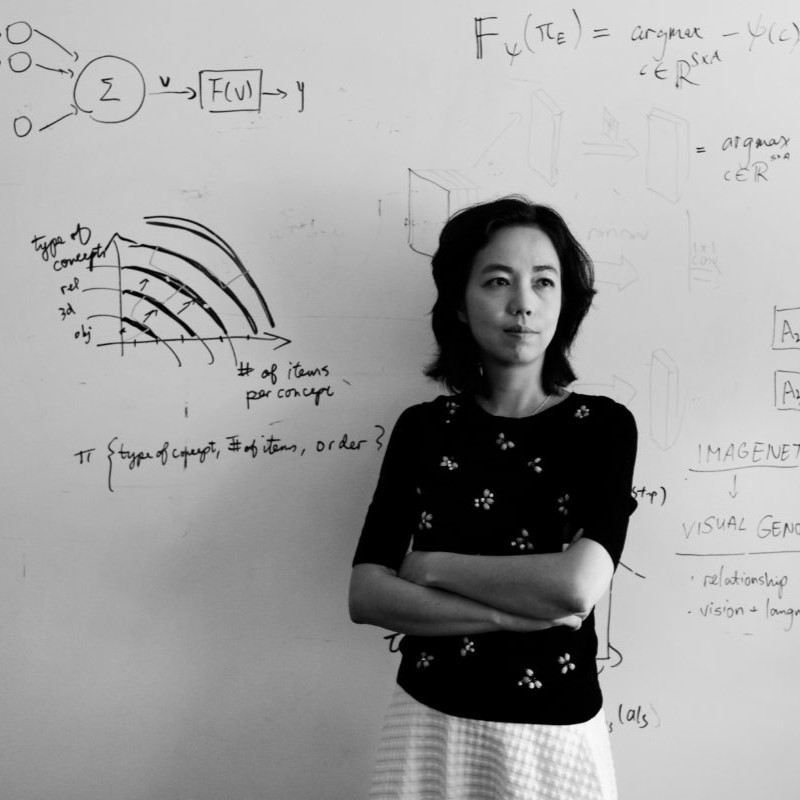 Σ
v
F(v)
y
F_ψ(π_E) = argmax - ψ(c)
c∈ℝ^{S×A}
= argmax
c∈ℝ^{S×A}
type of
concept
rel
3d
obj
# of items
per concept
π {type of concept, # of items, order}
IMAGENET
VISUAL GENO
· relationship
· vision + lang